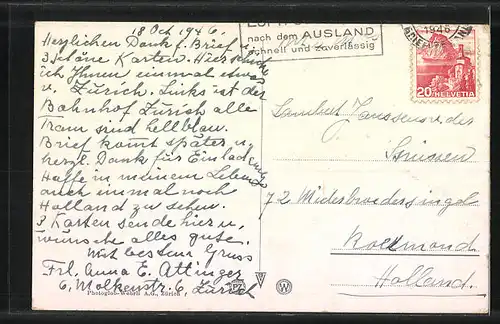 18 Oct 1946.
Herzlichen Dank f. Brief u.
3 schöne Karten. Hier schicke
ich Ihnen einmal etwas
v. Zürich. Links ist der
Bahnhof Zürich alle
Tram sind hellblau.
Brief komt später u.
herzl. Dank für Einladung
Hoffe in meinem Leben
auch einmal noch
Holland zu sehen.
3 Karten sende hier u.
wünsche alles gute.
Mit bestem Gruss
Frl. Anna E. Attinger
6, Molkenstr. 6, Zürich
Photoglob-Wehrli A.G., Zürich
PZ
W
nach dem AUSLAND
schnell und zuverlässig
1946
20 HELVETIA
72
Roermond
Holland.